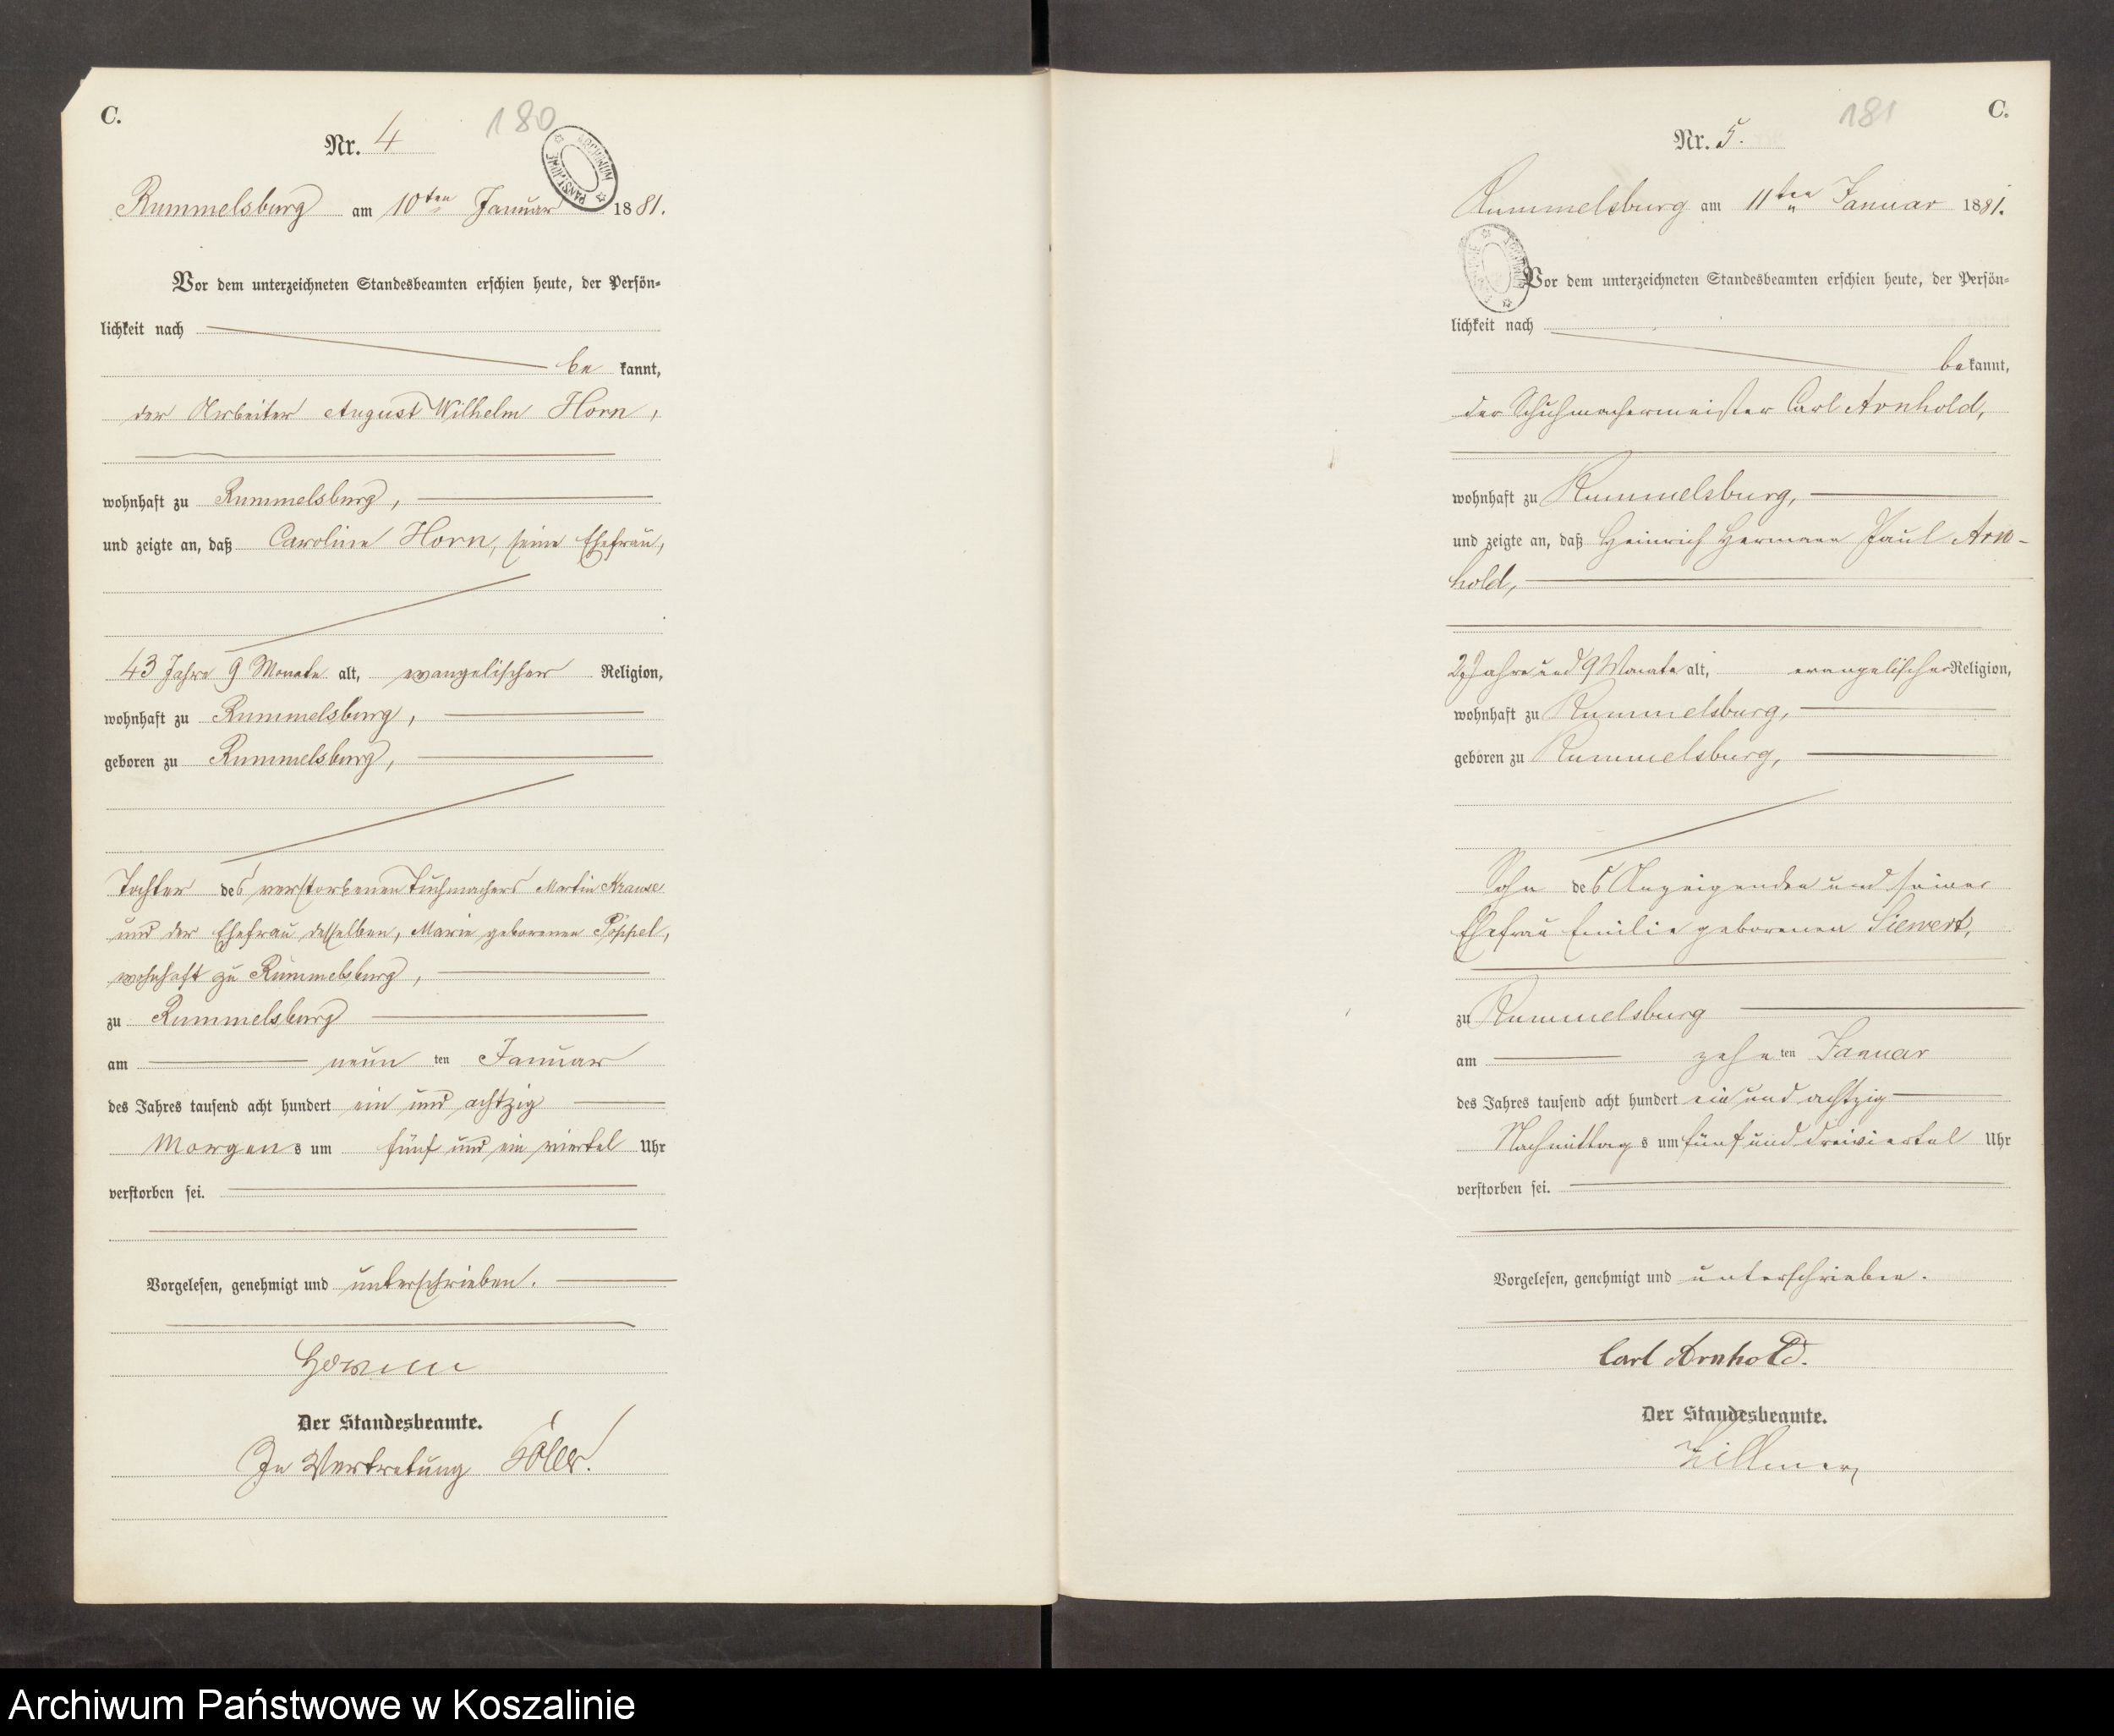 C.
180
Nr. 4
ARCHIWUM PAŃSTWOWE
Rummelsburg am 10ten Januar 1881.
Vor dem unterzeichneten Standesbeamten erschien heute, der Persön-
lichkeit nach
be kannt,
der Arbeiter August Wilhelm Horn,
wohnhaft zu Rummelsburg,
und zeigte an, daß Caroline Horn, seine Ehefrau,
43 Jahre 9 Monate alt, evangelischer Religion,
wohnhaft zu Rummelsburg,
geboren zu Rummelsburg,
Tochter des verstorbenen Tuchmachers Martin Krause
und der Ehefrau desselben, Marie geborenen Pöppel,
wohnhaft zu Rummelsburg,
zu Rummelsburg
am neun ten Januar
des Jahres tausend acht hundert ein und achtzig
Morgens um fünf und ein viertel Uhr
verstorben sei.
Vorgelesen, genehmigt und unterschrieben.
Der Standesbeamte.
In Vertretung
181
C.
Nr. 5.
Rummelsburg am 11ten Januar 1881.
Vor dem unterzeichneten Standesbeamten erschien heute, der Persön-
lichkeit nach
bekannt,
der Schuhmachermeister Carl Arnhold,
wohnhaft zu Rummelsburg,
und zeigte an, daß Heinrich Hermann Paul Arn-
hold,
Jahre und 9 Monate alt, evangelischer Religion,
wohnhaft zu Rummelsburg,
geboren zu Rummelsburg,
Sohn des Anzeigenden und seiner
Ehefrau Emilie geborenen Siewert,
zu Rummelsburg
am zehnten Januar
des Jahres tausend acht hundert ein und achtzig
Nachmittags um fünf und dreiviertel Uhr
verstorben sei.
Vorgelesen, genehmigt und unterschrieben.
Carl Arnhold.
Der Standesbeamte.
Zillmer
Archiwum Państwowe w Koszalinie